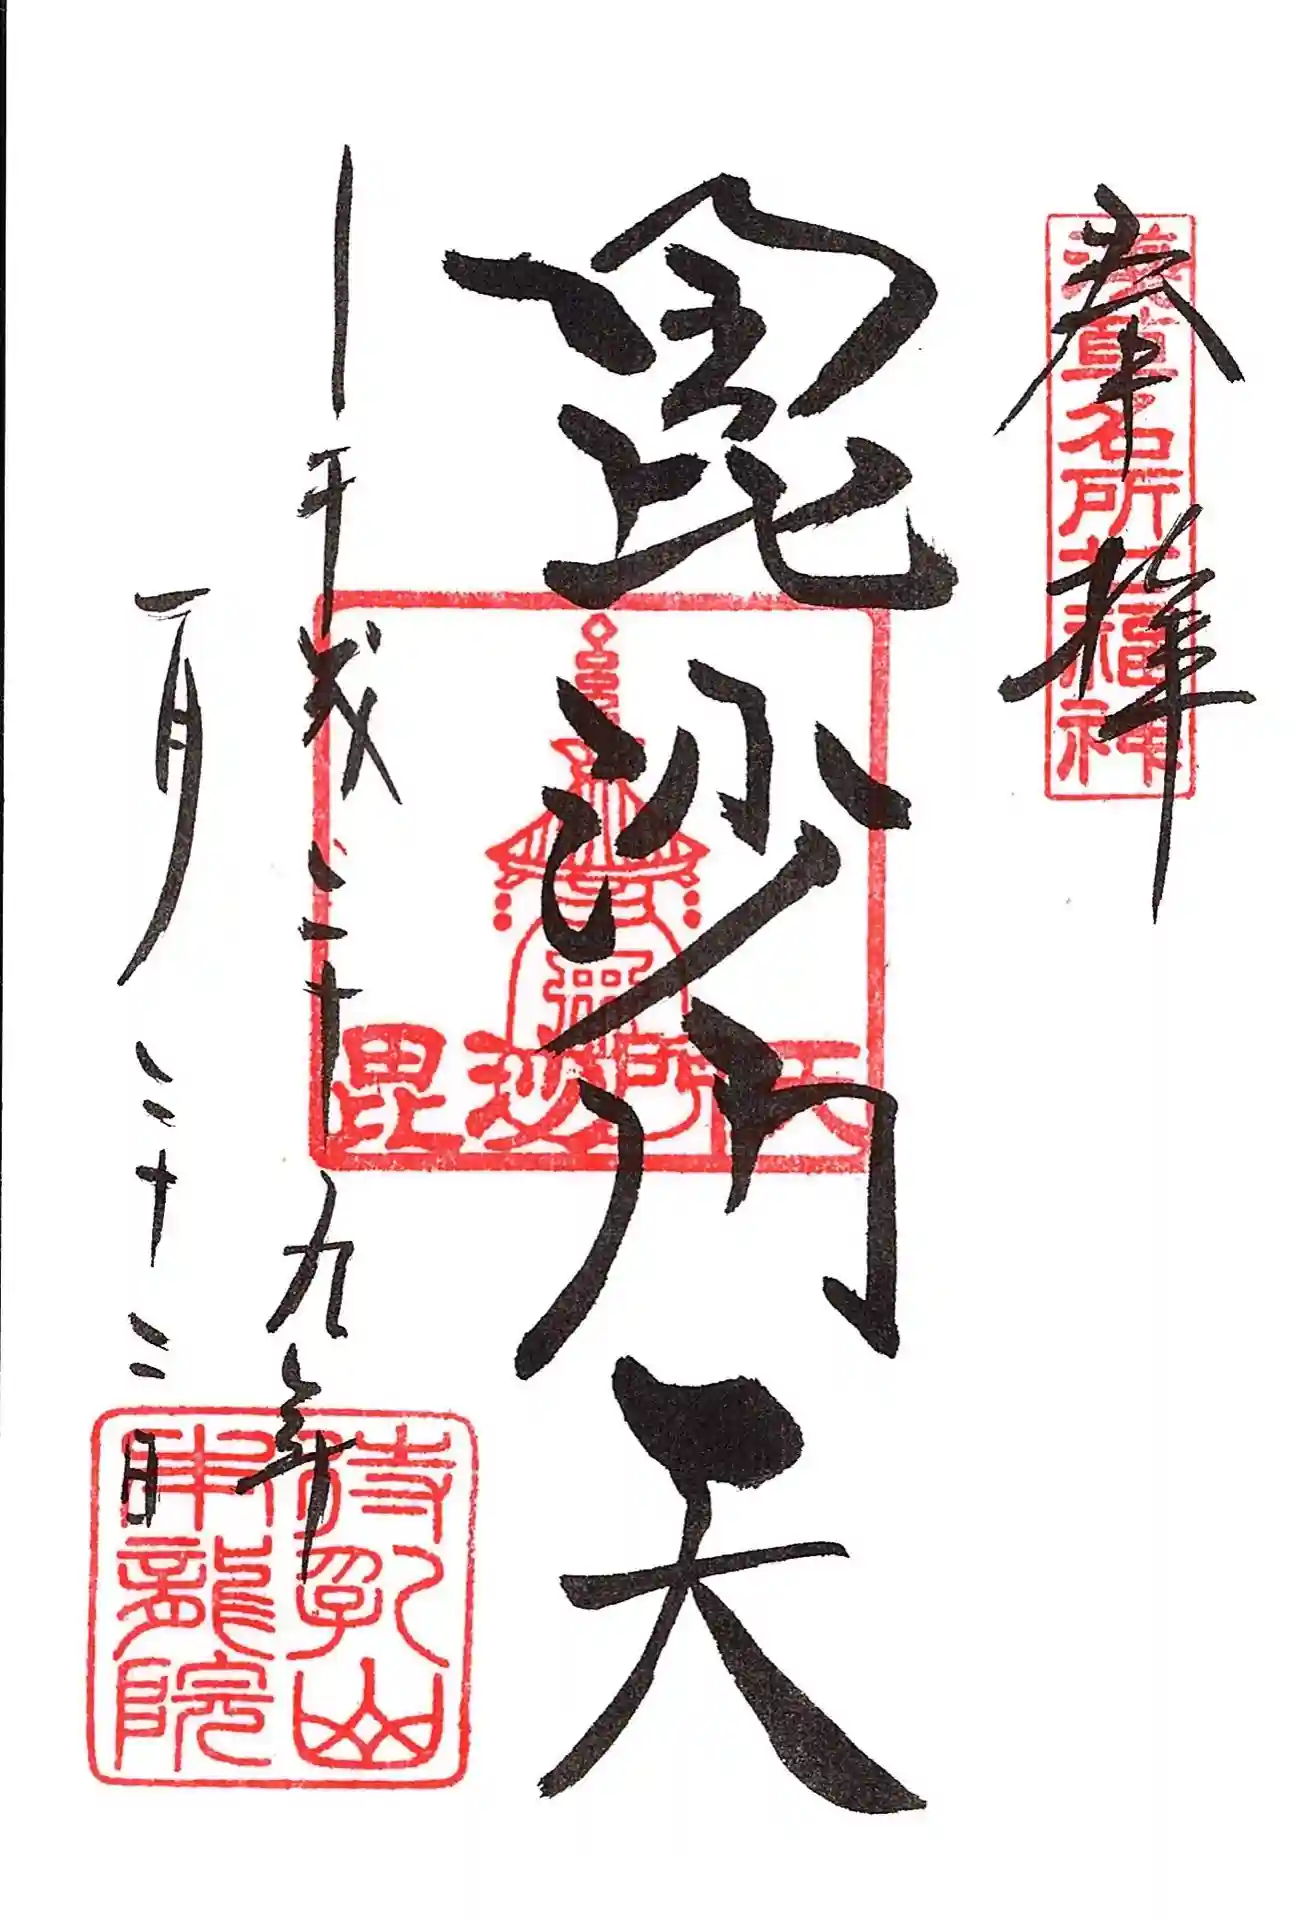 奉拝
浅草名所七福神
毘沙門天
毘沙門天
平成二十九年
一月二十二日
待乳山
本龍院